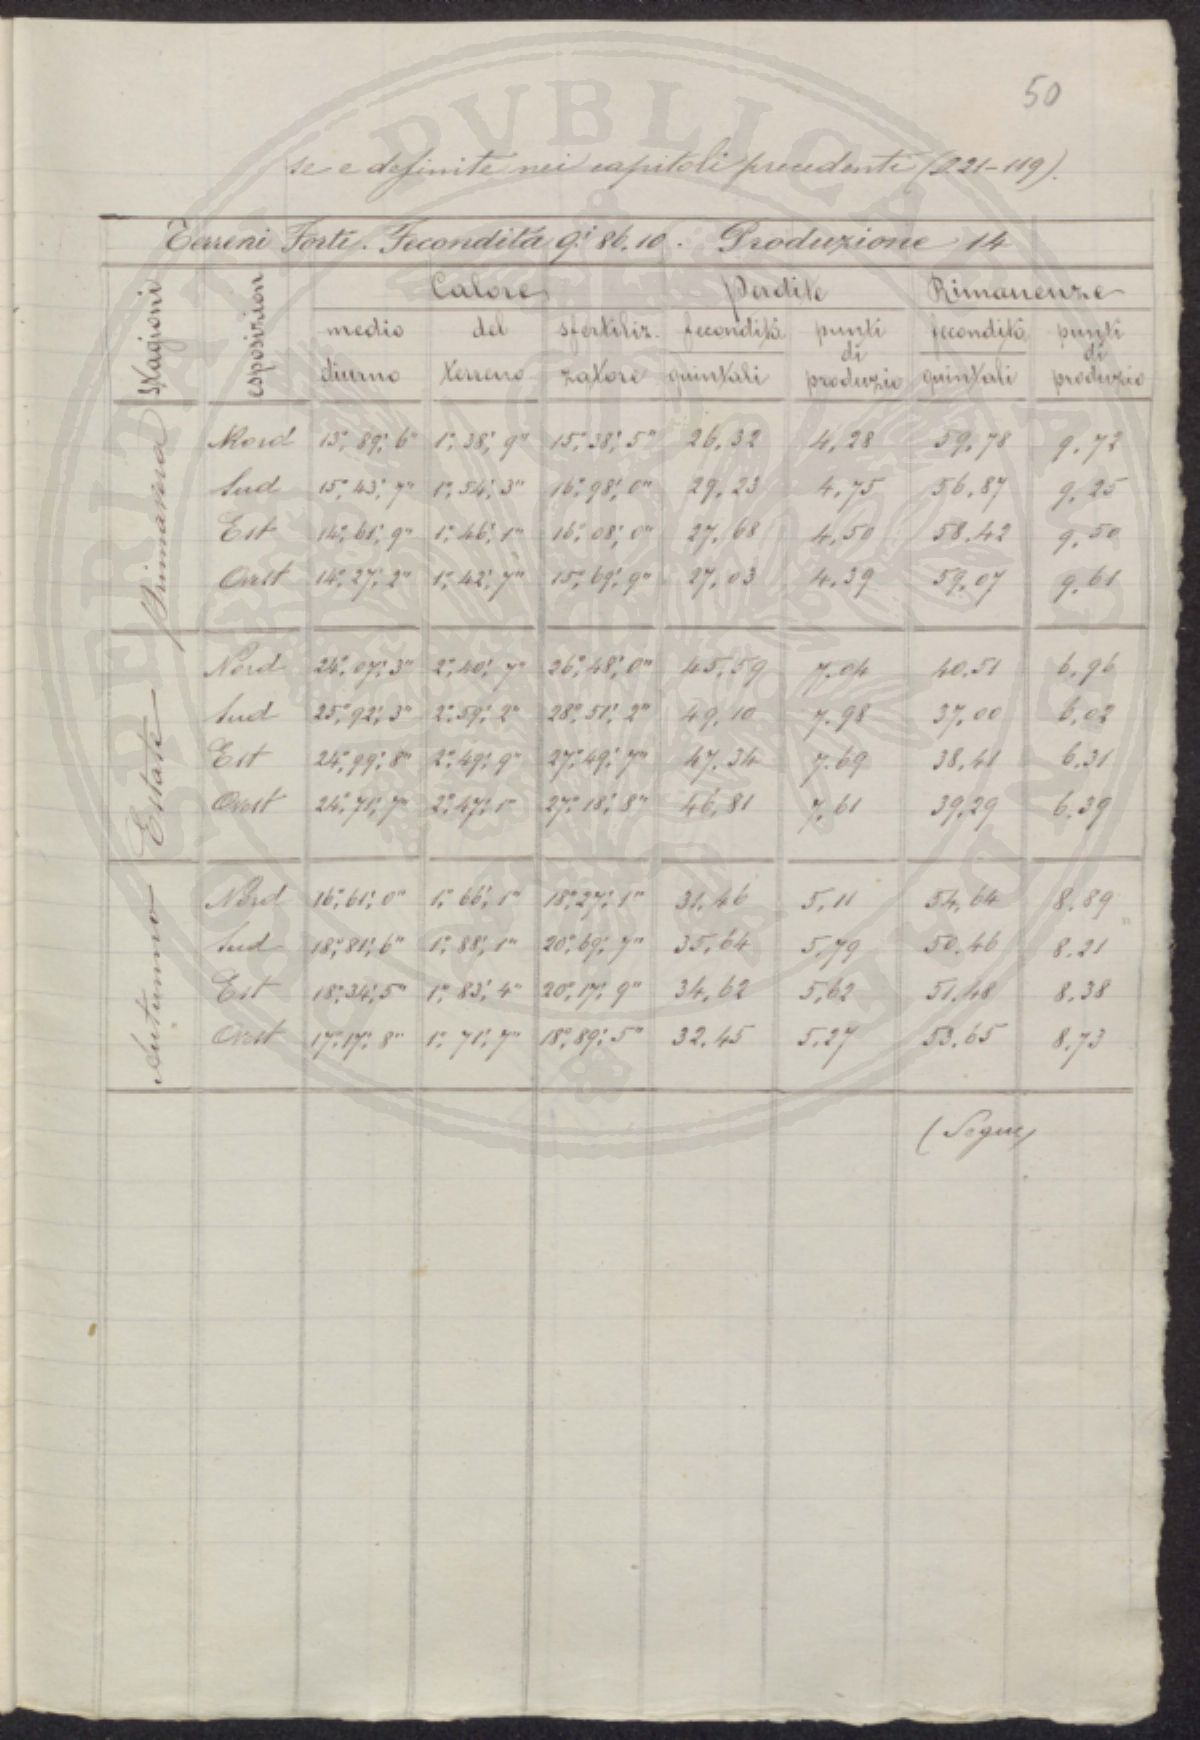 50
se e definite nei capitoli precedenti (221-119).
Terreni Forti. Fecondità q.i 86.10. Produzione 14
Stagioni esposizion Calore Perdite Rimanenze
medio diurno del terreno sfertiliz-zatore fecondità quintali punti di produzio fecondità quintali punti di produzio
Primavera
Nord 13°, 89', 6" 1°, 38', 9" 15°, 38', 5" 26,32 4,28 59,78 9,72
Sud 15°, 43', 7" 1°, 54', 3" 16°, 98', 0" 29,23 4,75 56,87 9,25
Est 14°, 61', 9" 1°, 46', 1" 16°, 08', 0" 27,68 4,50 58,42 9,50
Ovest 14°, 27', 2" 1°, 42', 7" 15°, 69', 9" 27,03 4,39 59,07 9,61
Estate
Nord 24°, 07', 3" 2°, 40', 7" 26°, 48', 0" 45,59 7,04 40,51 6,96
Sud 25°, 92', 3" 2°, 59', 2" 28°, 51', 2" 49,10 7,98 37,00 6,02
Est 24°, 99', 8" 2°, 49', 9" 27°, 49', 7" 47,34 7,69 38,41 6,31
Ovest 24°, 71', 7" 2°, 47', 1" 27°, 18', 8" 46,81 7,61 39,29 6,39
Autunno
Nord 16°, 61', 0" 1°, 66', 1" 18°, 27', 1" 31,46 5,11 54,64 8,89
Sud 18°, 81', 6" 1°, 88', 1" 20°, 69', 7" 35,64 5,79 50,46 8,21
Est 18°, 34', 5" 1°, 83', 4" 20°, 17', 9" 34,62 5,62 51,48 8,38
Ovest 17°, 17', 8" 1°, 71', 7" 18°, 89', 5" 32,45 5,27 53,65 8,73
(Segue)